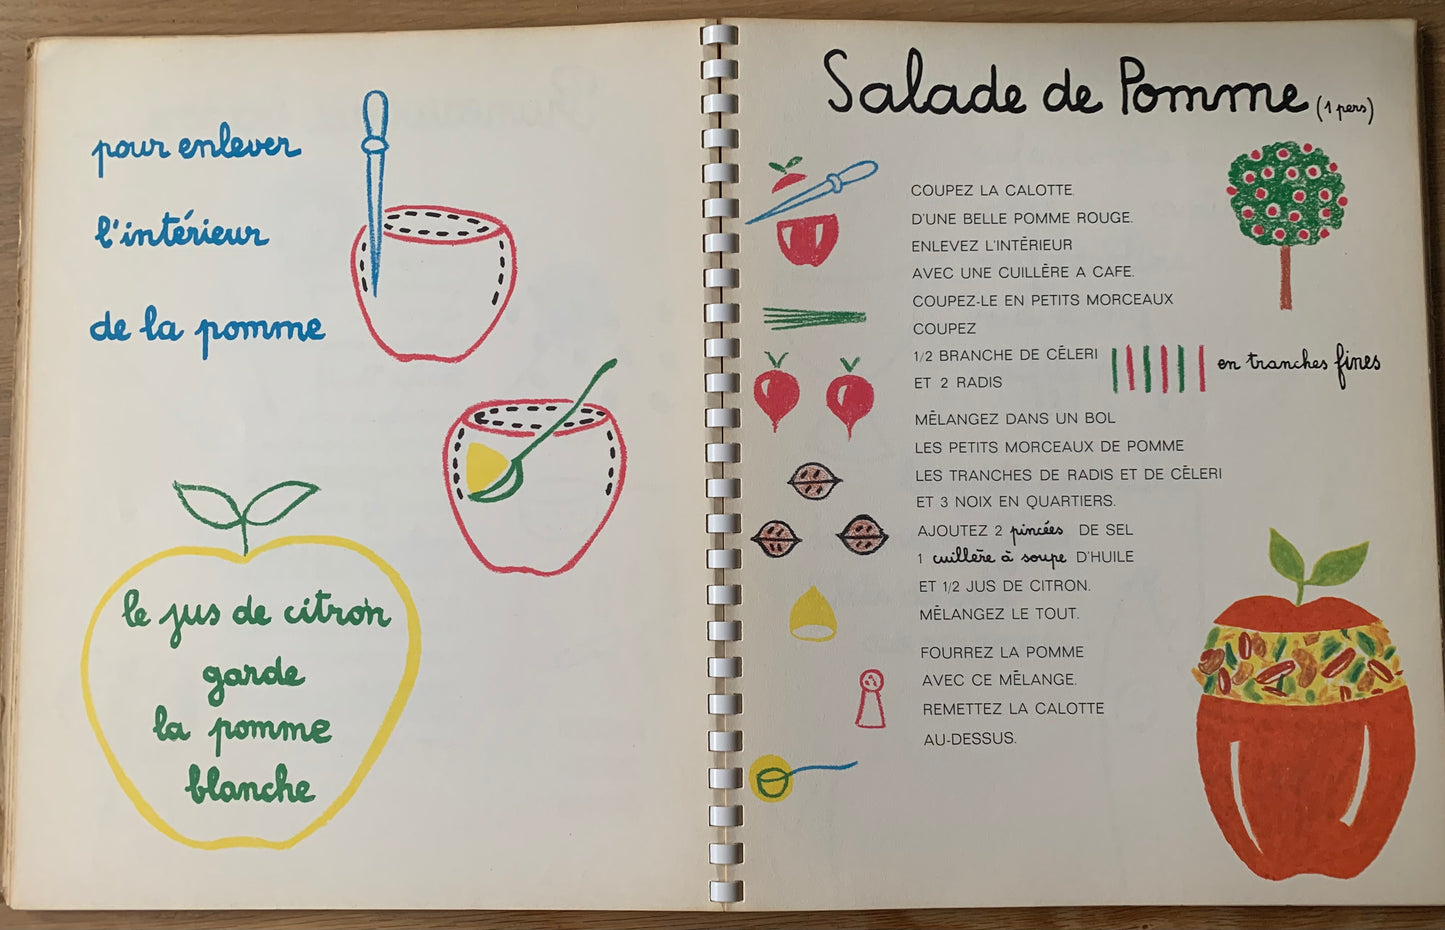 pour enlever
l'intérieur
de la pomme
le jus de citron
garde
la pomme
blanche
Salade de Pomme (1 pers)
COUPEZ LA CALOTTE
D'UNE BELLE POMME ROUGE.
ENLEVEZ L'INTÉRIEUR
AVEC UNE CUILLÈRE A CAFE.
COUPEZ-LE EN PETITS MORCEAUX
COUPEZ
1/2 BRANCHE DE CÉLERI
ET 2 RADIS
en tranches fines
MÉLANGEZ DANS UN BOL
LES PETITS MORCEAUX DE POMME
LES TRANCHES DE RADIS ET DE CÉLERI
ET 3 NOIX EN QUARTIERS.
AJOUTEZ 2 pincées DE SEL
1 cuillère à soupe D'HUILE
ET 1/2 JUS DE CITRON.
MÉLANGEZ LE TOUT.
FOURREZ LA POMME
AVEC CE MÉLANGE.
REMETTEZ LA CALOTTE
AU-DESSUS.